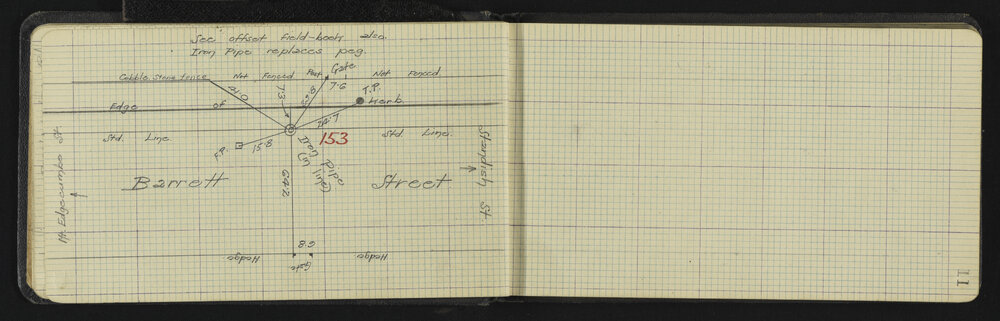 See offset field-book also.
Iron Pipe replaces peg.
Gate.
Cobble Stone fence
Not Fenced
Post
Not Fenced
41.0
7.3
7.6
T.P.
Kerb.
Edge of
Std. Line.
153
Std. Line.
F.P.
15.8
Iron Pipe
(in line)
Barrett Street
64.2
Mt. Edgecumbe St
Standish St.
6.8
Hedge
Gate
Hedge
11